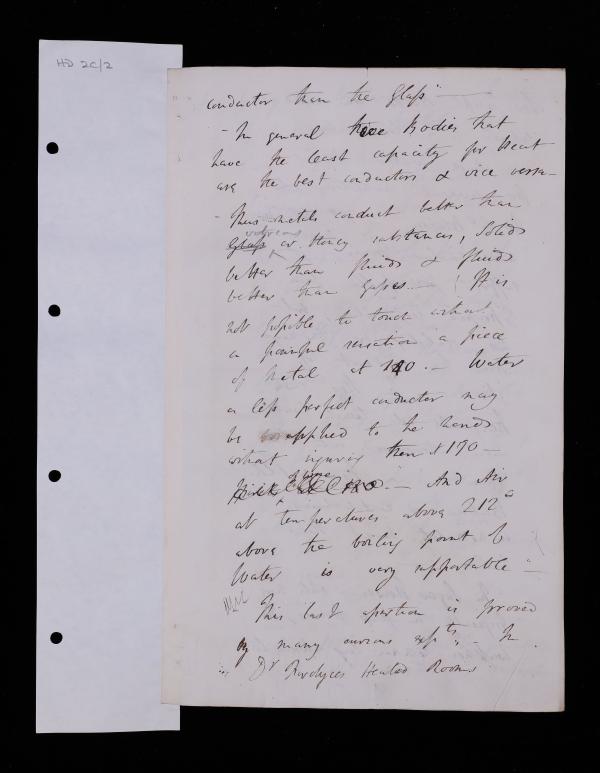 HD 2C/2
conductor than the Glass —
- In general those Bodies that
have the least capacity for Heat
are the best conductors & vice versa —
- Thus metals conduct better than
vitreous
Glass or stoney substances, Solids
better than fluids & fluids
better than gasses — It is
not possible to touch without
a painful sensation a piece
of metal at 120. — Water
a less perfect conductor may
be applied to the hands
without injuring them at 170 —
— And Air
at temperatures above 212°
above the boiling point of
Water is very supportable —
This last assertion is proved
by many curious expts. — In
Dr Fordyces Heated Rooms